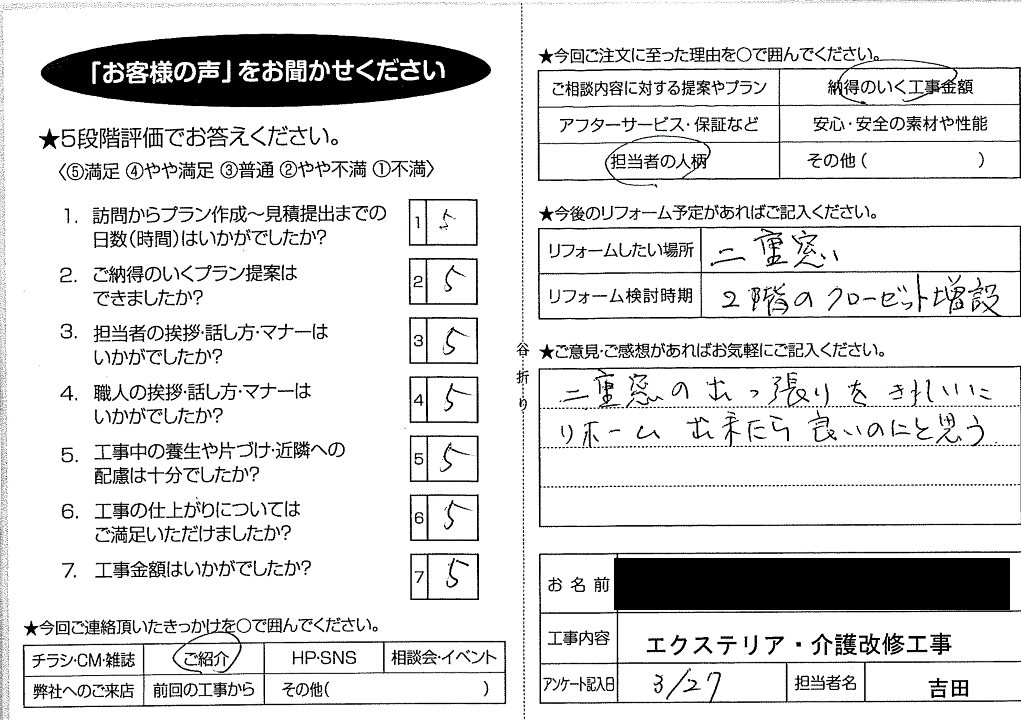 「お客様の声」をお聞かせください
★5段階評価でお答えください。
〈⑤満足 ④やや満足 ③普通 ②やや不満 ①不満〉
1. 訪問からプラン作成～見積提出までの
日数(時間)はいかがでしたか?
1 5
2. ご納得のいくプラン提案は
できましたか?
2 5
3. 担当者の挨拶・話し方・マナーは
いかがでしたか?
3 5
4. 職人の挨拶・話し方・マナーは
いかがでしたか?
4 5
5. 工事中の養生や片づけ・近隣への
配慮は十分でしたか?
5 5
6. 工事の仕上がりについては
ご満足いただけましたか?
6 5
7. 工事金額はいかがでしたか?
7 5
★今回ご連絡頂いたきっかけを○で囲んでください。
チラシ・CM・雑誌 ご紹介 HP・SNS 相談会・イベント
弊社へのご来店 前回の工事から その他( )
谷折り
★今回ご注文に至った理由を○で囲んでください。
ご相談内容に対する提案やプラン 納得のいく工事金額
アフターサービス・保証など 安心・安全の素材や性能
担当者の人柄 その他( )
★今後のリフォーム予定があればご記入ください。
リフォームしたい場所 二重窓い
リフォーム検討時期 2階のクローゼット増設
★ご意見・ご感想があればお気軽にご記入ください。
二重窓の出っ張りをきれいに
リホーム出来たら良いのにと思う
お名前
工事内容 エクステリア・介護改修工事
アンケート記入日 3/27 担当者名 吉田